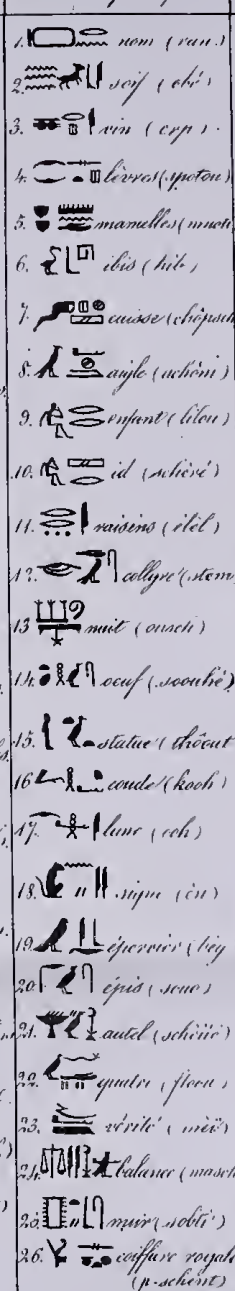 1. nom (ran.)
2. soif (obé)
3. vin (erp).
4. lèvres (spotou)
5. mamelles (mnoti
6. ibis (hib)
7. cuisse (chôpsch
8. aigle (achôm)
9. enfant (lilou)
10. id (schéré)
11. raisins (élél)
12. collyre (stem
13 nuit (ouschi)
14. oeuf (soouhé)
15. statue (thôout
16 coude (kooh)
17. lune (ooh)
18. (én)
19. épervier (bég
20. épis (
21. autel (schêüé)
22. quatre (ftoou)
23. vérité (méï)
24. balance (masch
25. mur (sobti)
26. coiffure royale
(p-schént)